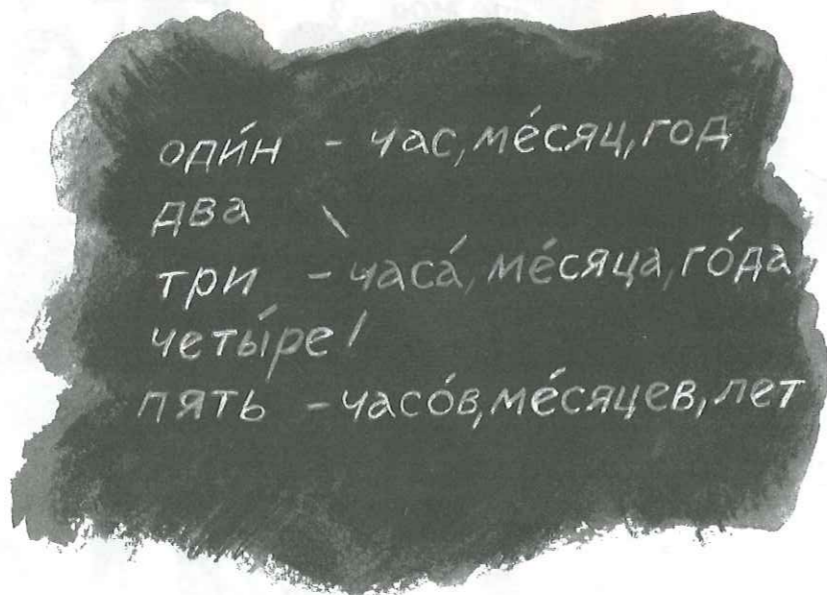 оди́н - час, ме́сяц, год
два \
три - часа́, ме́сяца, го́да
четы́ре /
пять - часо́в, ме́сяцев, лет